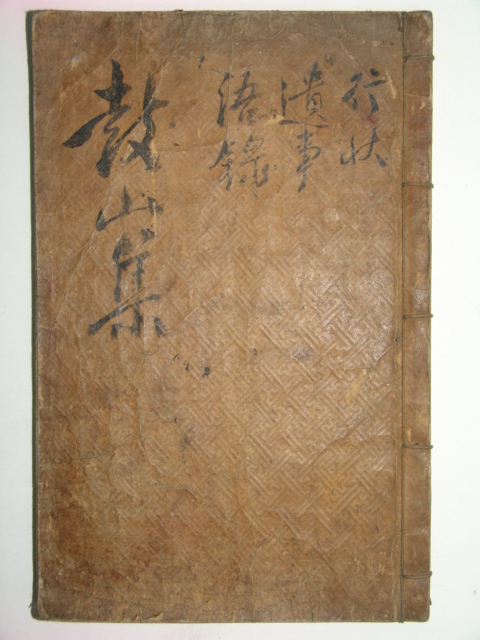 行狀
遺事
語錄
鼓山集